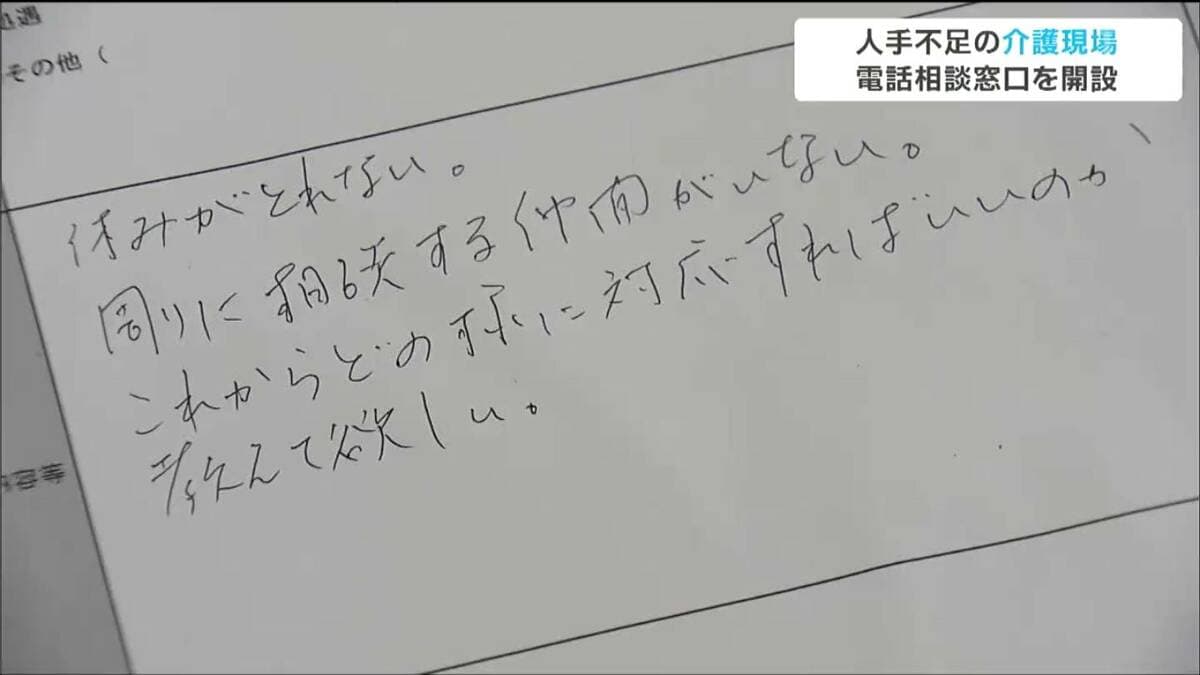 人手不足の介護現場
電話相談窓口を開設
処遇
その他(
休みがとれない。
周りに相談する仲間がいない。
これからどの様に対応すればいいのか、
教えて欲しい。
内容等